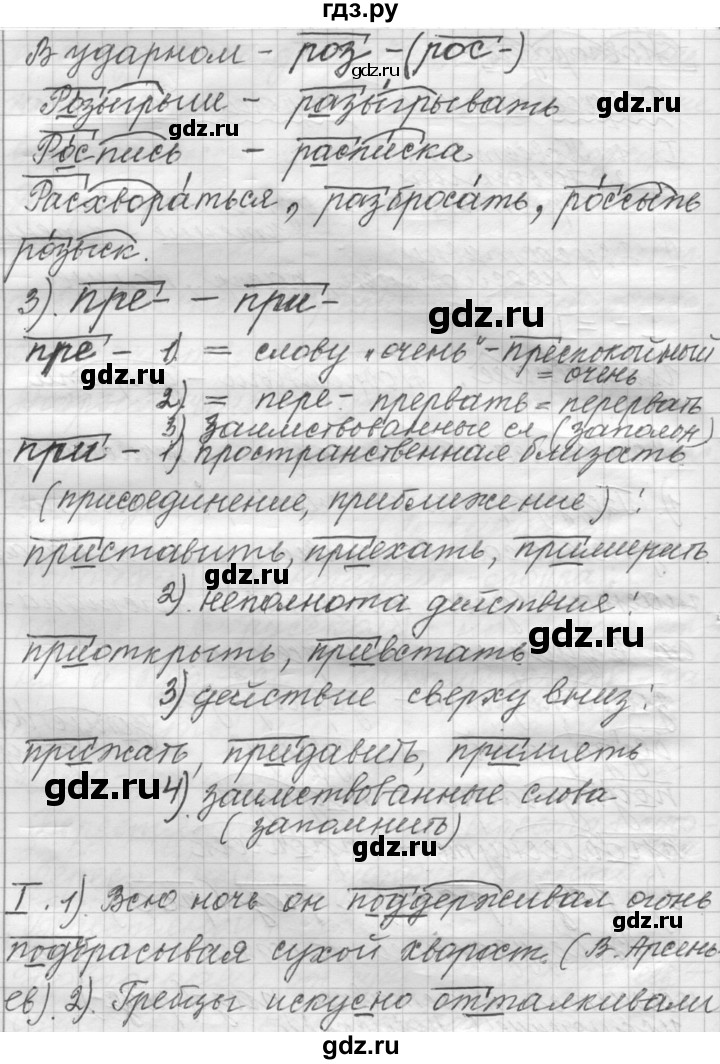 гдз.ру
В ударном - роз - (рос -)
gdz.ru
Розыгрыш - разыгрывать
gdz.ru
gdz.ru
Роспись - расписка
Расхвораться, разбросать, россыпь
розыск.
3). пре- - при-
gdz.ru
пре - 1) = слову „очень" - преспокойный
gdz.ru
= очень
2) = пере - прервать = перервать
3) заимствованные сл (заполон)
при - 1) пространственная близость
gdz.ru
(присоединение, приближение):
приставить, приехать, примерять
gdz.ru
2). неполнота действия:
gdz.ru
приоткрыть, привстать
3) действие сверху вниз:
прижать, придавить, примять
gdz.ru
4). заимствованные слова
(запомнить)
gdz.ru
I. 1). Всю ночь он поддерживал огонь
gdz.ru
подбрасывая сухой хворост. (В. Арсень-
ев). 2). Гребцы искусно отталкивали
gdz.ru